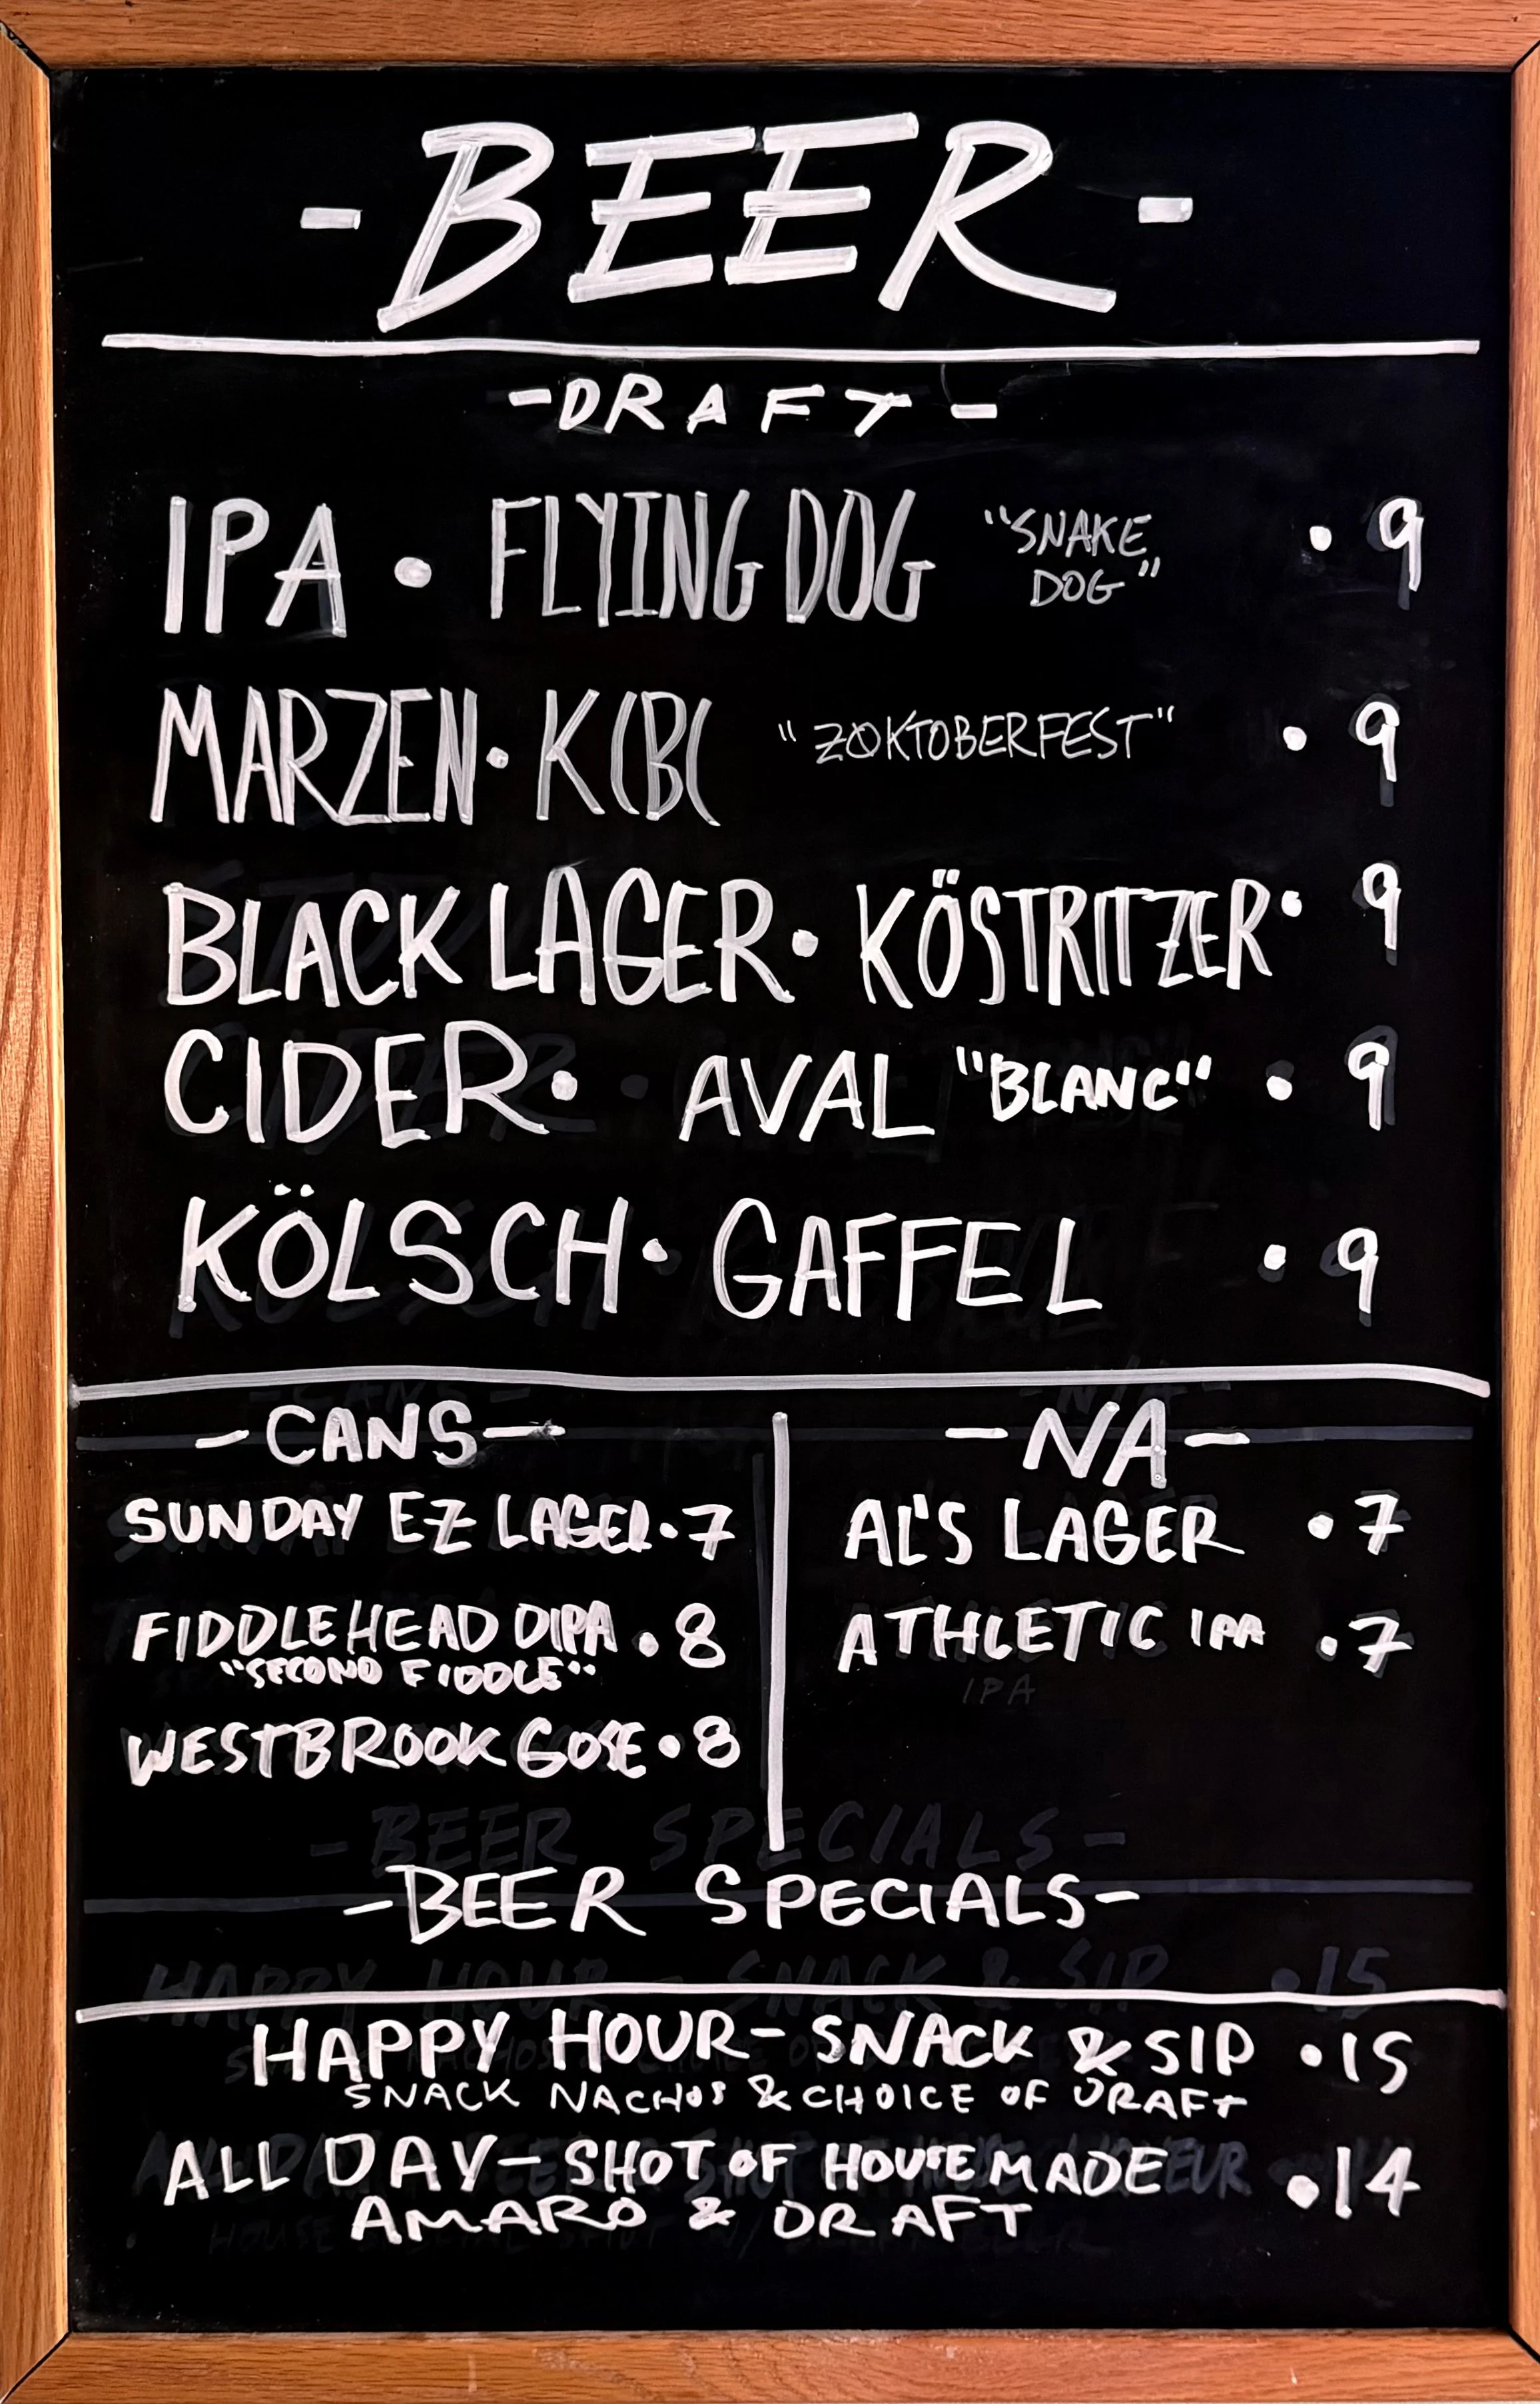 -BEER-
-DRAFT-
IPA • FLYING DOG "SNAKE DOG" • 9
MARZEN • KCBC "ZOKTOBERFEST" • 9
BLACK LAGER • KÖSTRITZER • 9
CIDER • AVAL "BLANC" • 9
KÖLSCH • GAFFEL • 9
-CANS-
SUNDAY EZ LAGER • 7
FIDDLEHEAD DIPA • 8
"SECOND FIDDLE"
WESTBROOK GOSE • 8
-NA-
AL'S LAGER • 7
ATHLETIC IPA • 7
-BEER SPECIALS-
HAPPY HOUR - SNACK & SIP • 15
SNACK NACHOS & CHOICE OF DRAFT
ALL DAY - SHOT OF HOUSEMADE • 14
AMARO & DRAFT